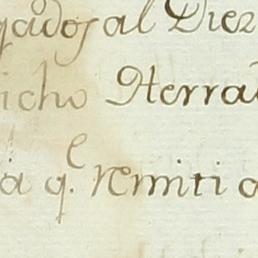 gados al Diez
icho Herra
a q.e remiti a